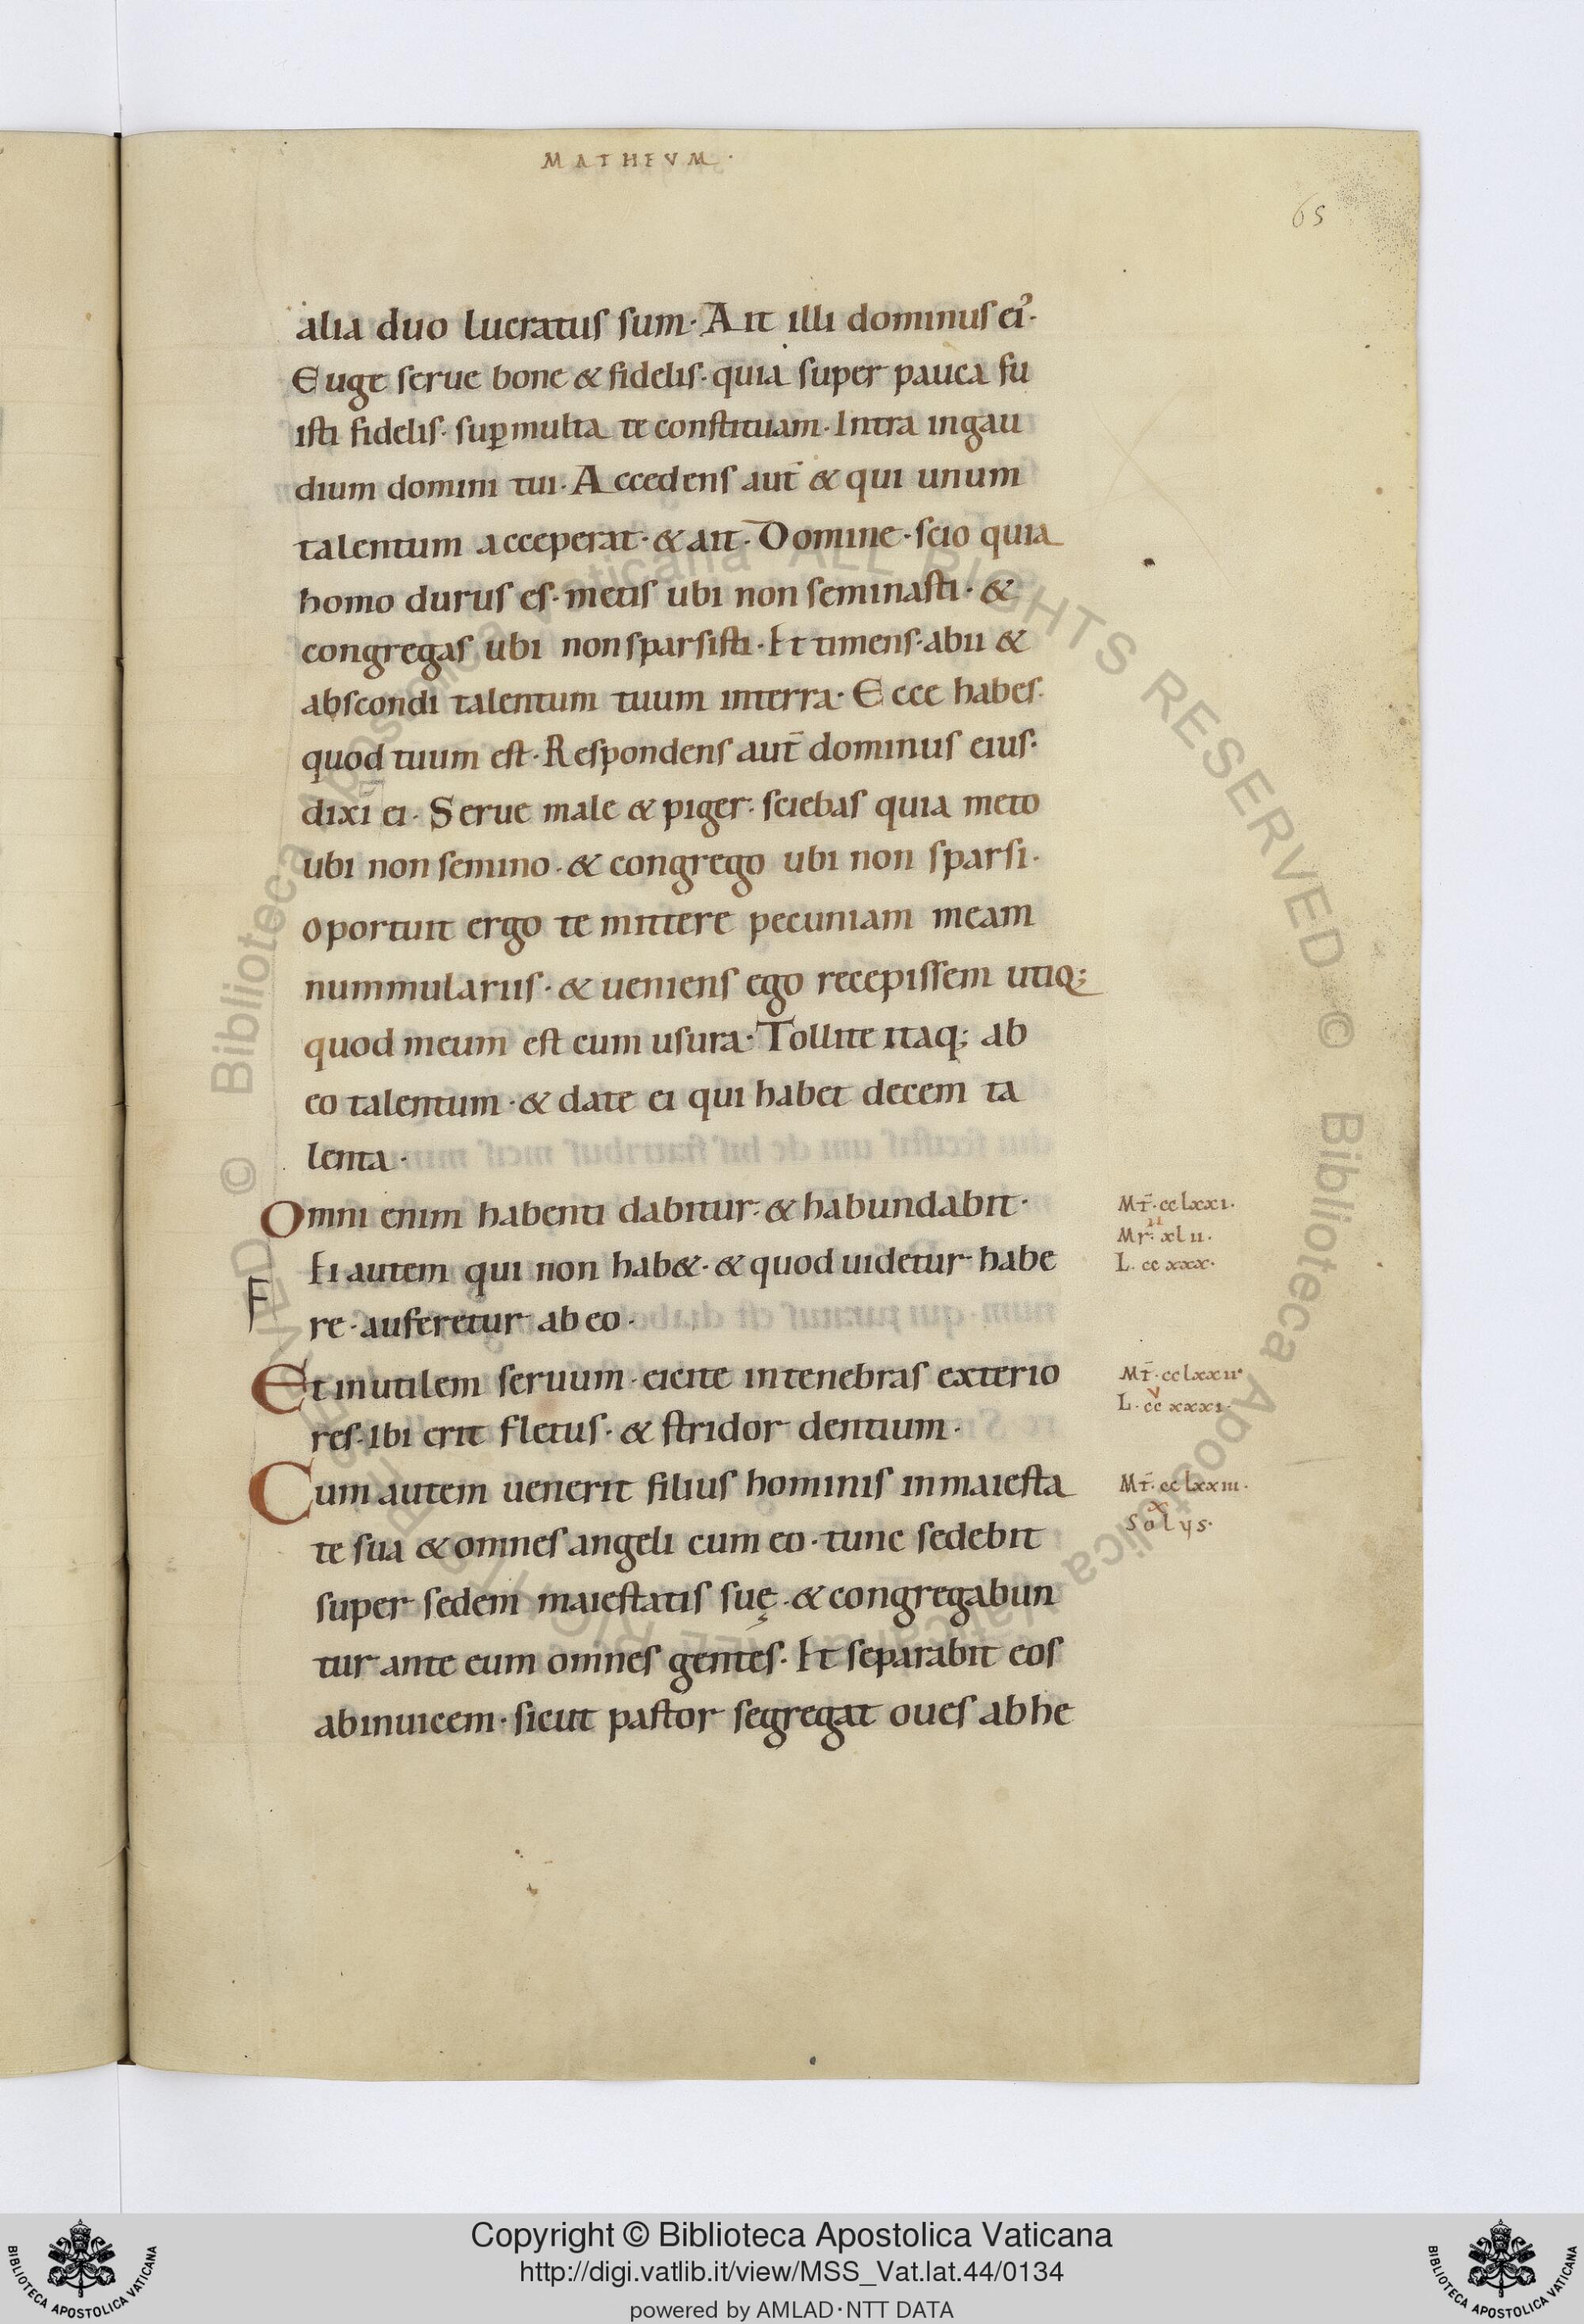 MATHEVM·
65
alia duo lucratus sum· Ait illi dominus ei᾽·
Euge serue bone & fidelis· quia super pauca fu
isti fidelis· suꝑ multa te constituam· Intra in gau
dium domini tui· Accedens aut̄ & qui unum
talentum acceperat· & ait· Domine· scio quia
homo durus es· metis ubi non seminasti· &
congregas ubi non sparsisti· Et timens· abii &
abscondi talentum tuum in terra· Ecce habes·
quod tuum est· Respondens aut̄ dominus eius·
dixi ei· Serue male & piger· sciebas quia meto
ubi non semino· & congrego ubi non sparsi·
oportuit ergo te mittere pecuniam meam
nummulariis· & ueniens ego recepissem utiq;
quod meum est cum usura· Tollite itaq; ab
eo talentum· & date ei qui habet decem ta
lenta·
Omni enim habenti dabitur· & habundabit·
Mt̄· cclxxi·
Mr̄· xlii·
ii
Ei autem qui non hab&· & quod uidetur habe
L· ccxxx·
E
re· auferetur ab eo·
Et inutilem seruum· eicite in tenebras exterio
Mt̄· cclxxii·
v
L· ccxxxi·
res· Ibi erit fletus· & stridor dentium·
Cum autem uenerit filius hominis in maiesta
Mt̄· cclxxiii·
x
Solus·
te sua & omnes angeli cum eo· tunc sedebit
super sedem maiestatis suę· & congregabun
tur ante eum omnes gentes· Et separabit eos
abinuicem· sicut pastor segregat oues ab he
© Biblioteca Apostolica Vaticana ALL RIGHTS RESERVED
© Biblioteca Apostolica Vaticana ALL RIGHTS RESERVED
Copyright © Biblioteca Apostolica Vaticana
http://digi.vatlib.it/view/MSS_Vat.lat.44/0134
powered by AMLAD·NTT DATA
BIBLIOTECA APOSTOLICA VATICANA
BIBLIOTECA APOSTOLICA VATICANA